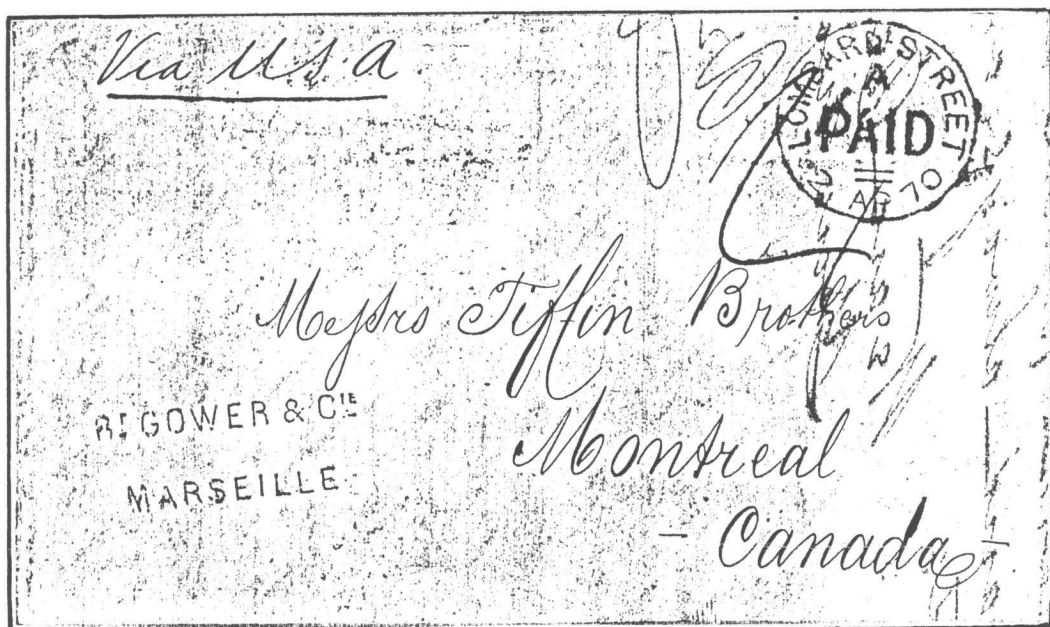 Via U.S.A
LOMBARD STREET
A
PAID
AP 70
Messrs Tiffin Brothers
Montreal
Canada
RT GOWER & CIE
MARSEILLE